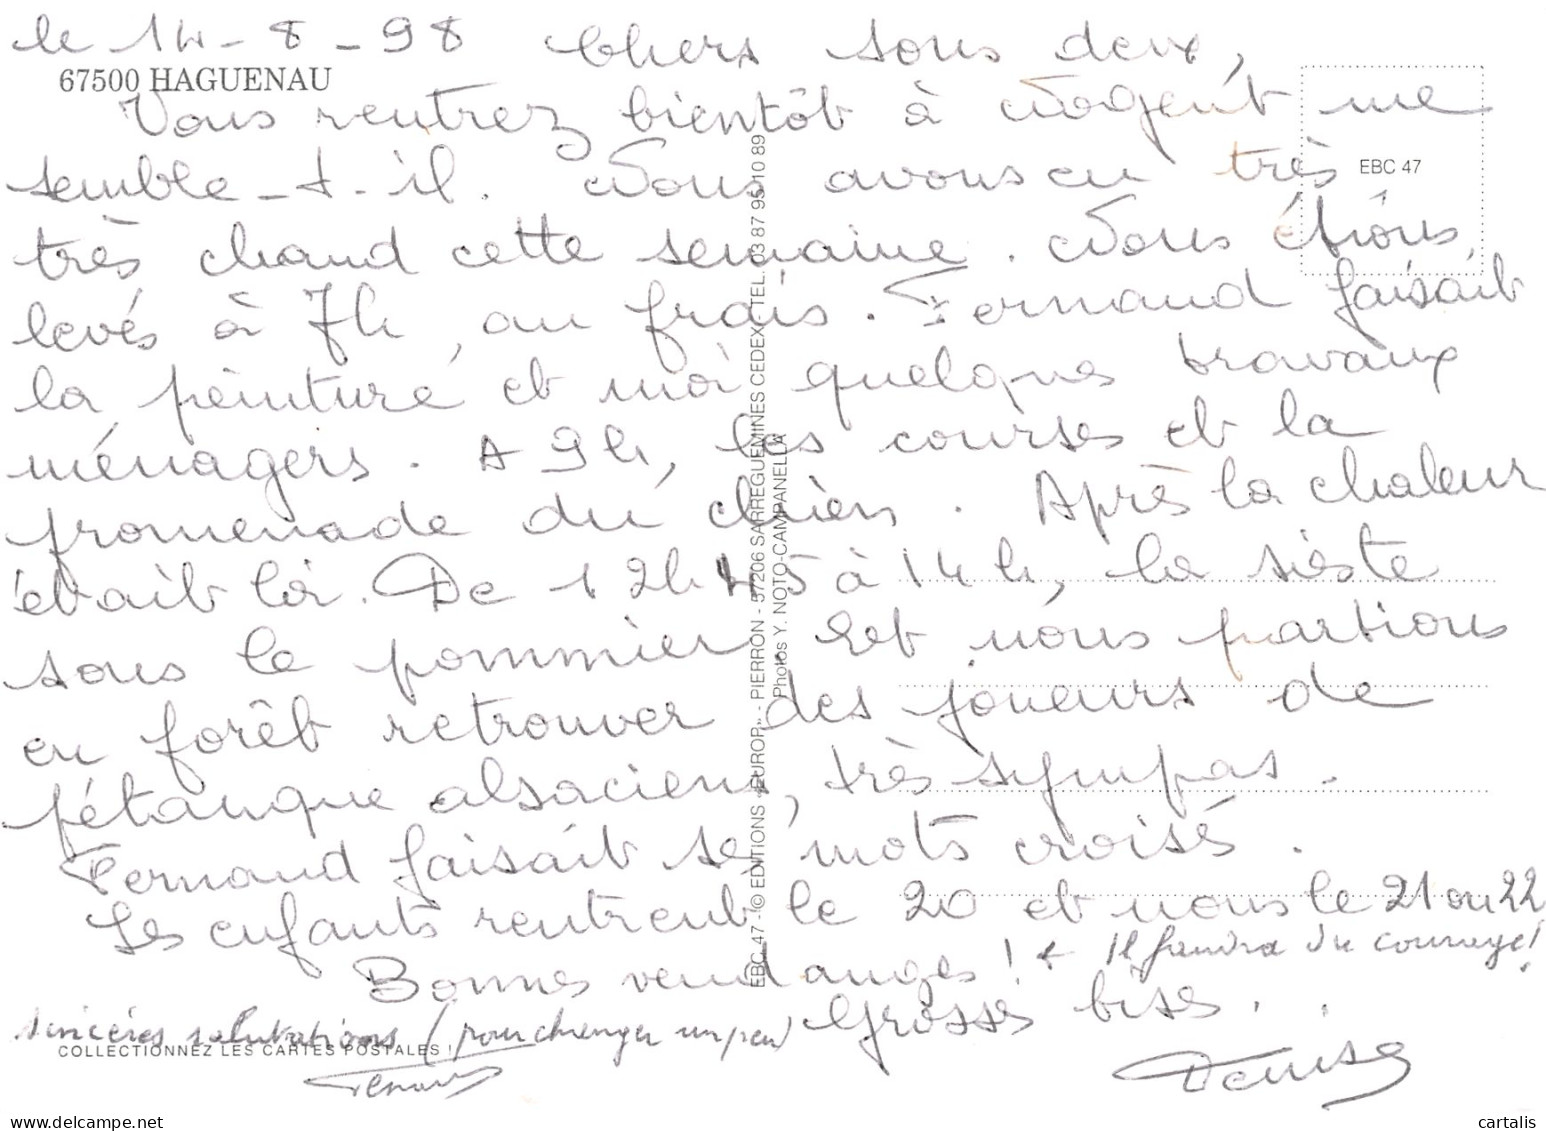 le 14-8-98 Chers tous deux,
67500 HAGUENAU
Vous rentrez bientôt à Nogent me
semble-t-il. Nous avons eu très
EBC 47
très chaud cette semaine. Nous étions
levés à 7h, au frais. Fernand faisait
la peinture et moi quelques travaux
ménagers. A 9h, les courses et la
promenade du chien. Après la chaleur
était là. De 12h45 à 14h, la sieste
sous le pommier. Et nous partions
en forêt retrouver des joueurs de
pétanque alsaciens, très sympas.
Fernand faisait se mots croisés.
Les enfants rentrent le 20 et nous le 21 ou 22
Bonnes vendanges ! + Il faudra du courage !
sincères salutations (pour changer un peu) Grosses bises.
COLLECTIONNEZ LES CARTES POSTALES !
Denise
EBC 47 - © EDITIONS „EUROP„ - PIERRON - 57206 SARREGUEMINES CEDEX - TEL. 03 87 95 10 89
Photos Y. NOTO-CAMPANELLA
cartalis
delcampe.net